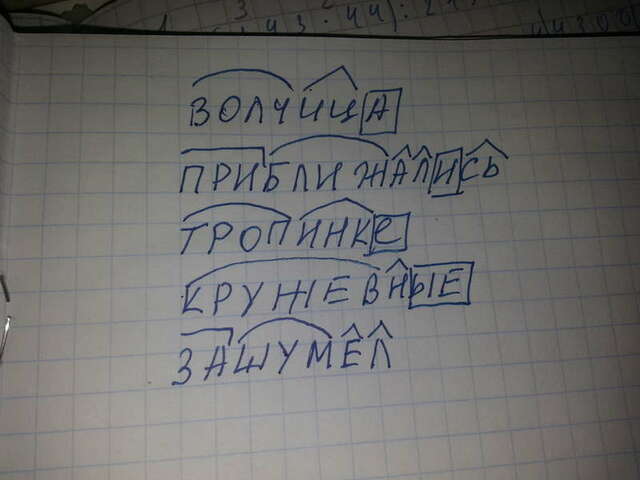 ВОЛЧИЦА
ПРИБЛИЖАЛИСЬ
ТРОПИНКЕ
КРУЖЕВНЫЕ
ЗАШУМЕЛ